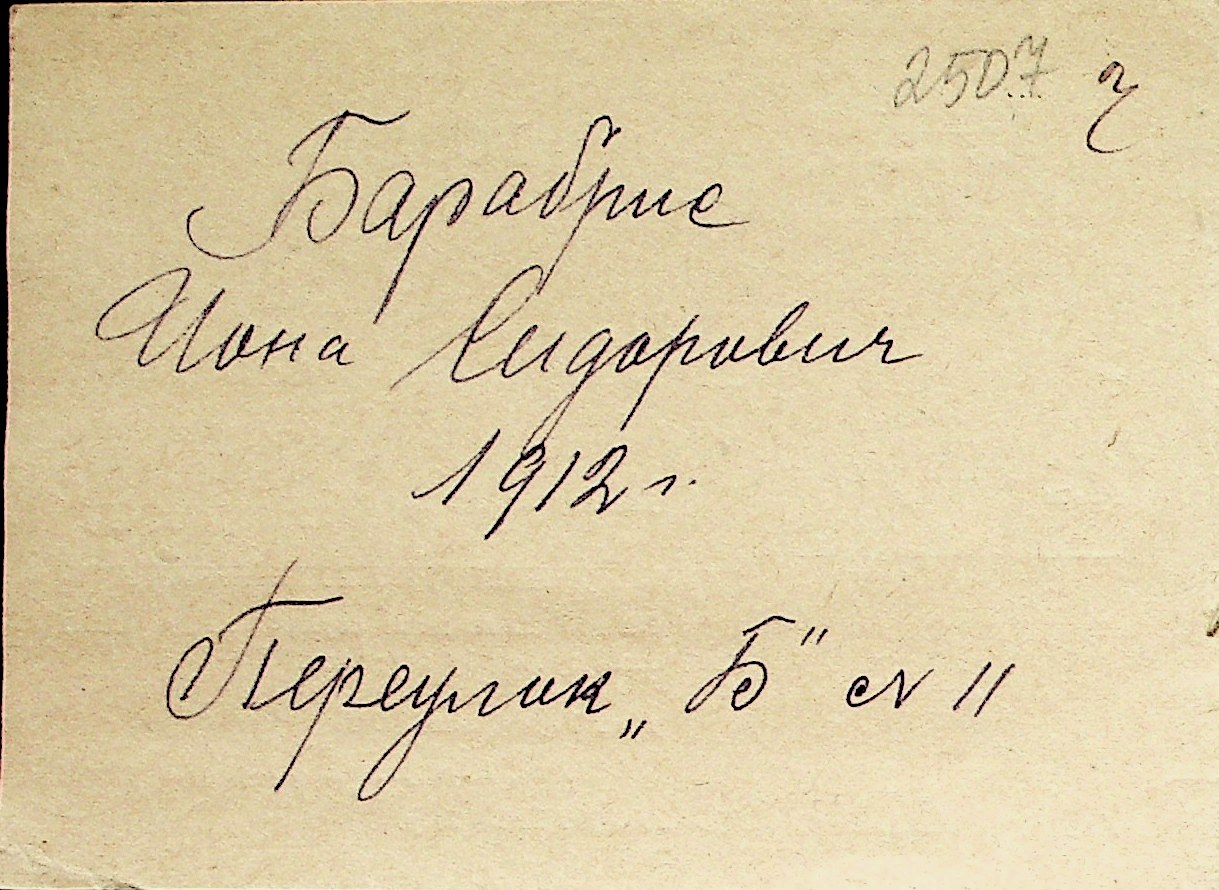 2507 ч
Барабрис
Иона Сидорович
1912 г.
Переулок „Б“ № 11